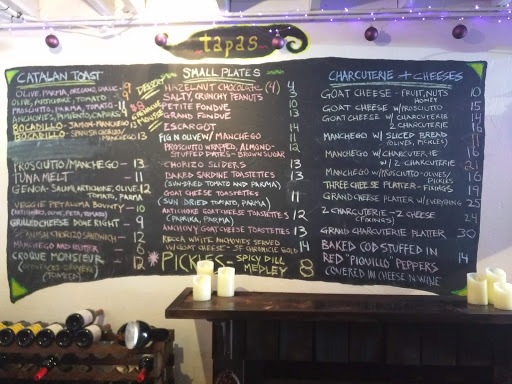 tapas
CATALAN TOAST
OLIVE, PARMA, OREGANO, GARLIC - 9
OLIVE, ANCHOVIE, TOMATO - 9
PROSCIUTTO, PARMA, TOMATO - 11
ANCHOVIES, PIMIENTO, CAPERS
BOCADILLO - JAMON + MANCHEGO 13
BOCADILLO - SPANISH CHORIZO/
MANCHEGO 13
PROSCIUTTO/MANCHEGO - 13
TUNA MELT - 11
GENOA - SALUMI, ARTICHOKE, OLIVE, 12
TOMATO, PARMA
VEGGIE PETALUMA BOUNTY - 10
GRILLED CHEESE DONE RIGHT - 9
SPANISH CHORIZO SANDWICH - 12
MANCHEGO AND BUTTER
CROQUE MONSIEUR - 12
DESSERT
SMALL PLATES
HAZELNUT CHOCOLATE (4) 4
SALTY, CRUNCHY PEANUTS 3
PETITE FONDUE 10
GRAND FONDUE 13
ESCARGOT 14
PIG N OLIVE W/ MANCHEGO 11
PROSCIUTTO WRAPPED, ALMOND- 12
STUFFED DATES - BROWN SUGAR
CHORIZO SLIDERS 13
BAKED SARDINE TOASTETTES 13
(SUN-DRIED TOMATO AND PARMA)
GOAT CHEESE TOASTETTES 11
(SUN DRIED TOMATO, PARMA)
ARTICHOKE GOAT CHEESE TOASTETTES 12
(PAPRIKA, PARMA)
ANCHOVY GOAT CHEESE TOASTETTES 13
WHITE ANCHOVIES SERVED
W/ GOAT CHEESE - SF CHRONICLE GOLD 14
PICKLES - SPICY DILL 8
MEDLEY
CHARCUTERIE + CHEESES
GOAT CHEESE - FRUIT, NUTS 10
HONEY
GOAT CHEESE W/ PROSCIUTTO 15
GOAT CHEESE W/ CHARCUTERIE 14
2 CHARCUTERIE 16
MANCHEGO W/ SLICED BREAD 11
(OLIVES, PICKLES)
MANCHEGO W/ CHARCUTERIE 16
W/ 2 CHARCUTERIE 21
MANCHEGO W/ PROSCIUTTO - OLIVES/ 16
PICKLES
THREE CHEESE PLATTER - FIXINGS 19
GRAND CHEESE PLATTER W/ EVERYTHING 25
2 CHARCUTERIE - 2 CHEESE 24
(FIXINGS)
GRAND CHARCUTERIE PLATTER 30
BAKED COD STUFFED IN 14
RED "PIQUILLO" PEPPERS
(COVERED IN CHEESE N WINE